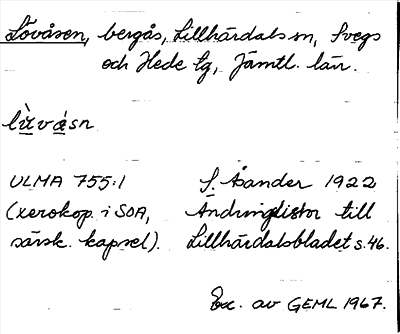 Lövåsen, bergås, Lillhärdals sn, Svegs
och Hede tg, Jämtl. län.
ULMA 755:1
(xerokop. i SOA,
särsk. kapsel).
S. Åsander 1922
Ändringslistor till
Lillhärdalsbladet s. 46.
Exc. av GEML 1967.